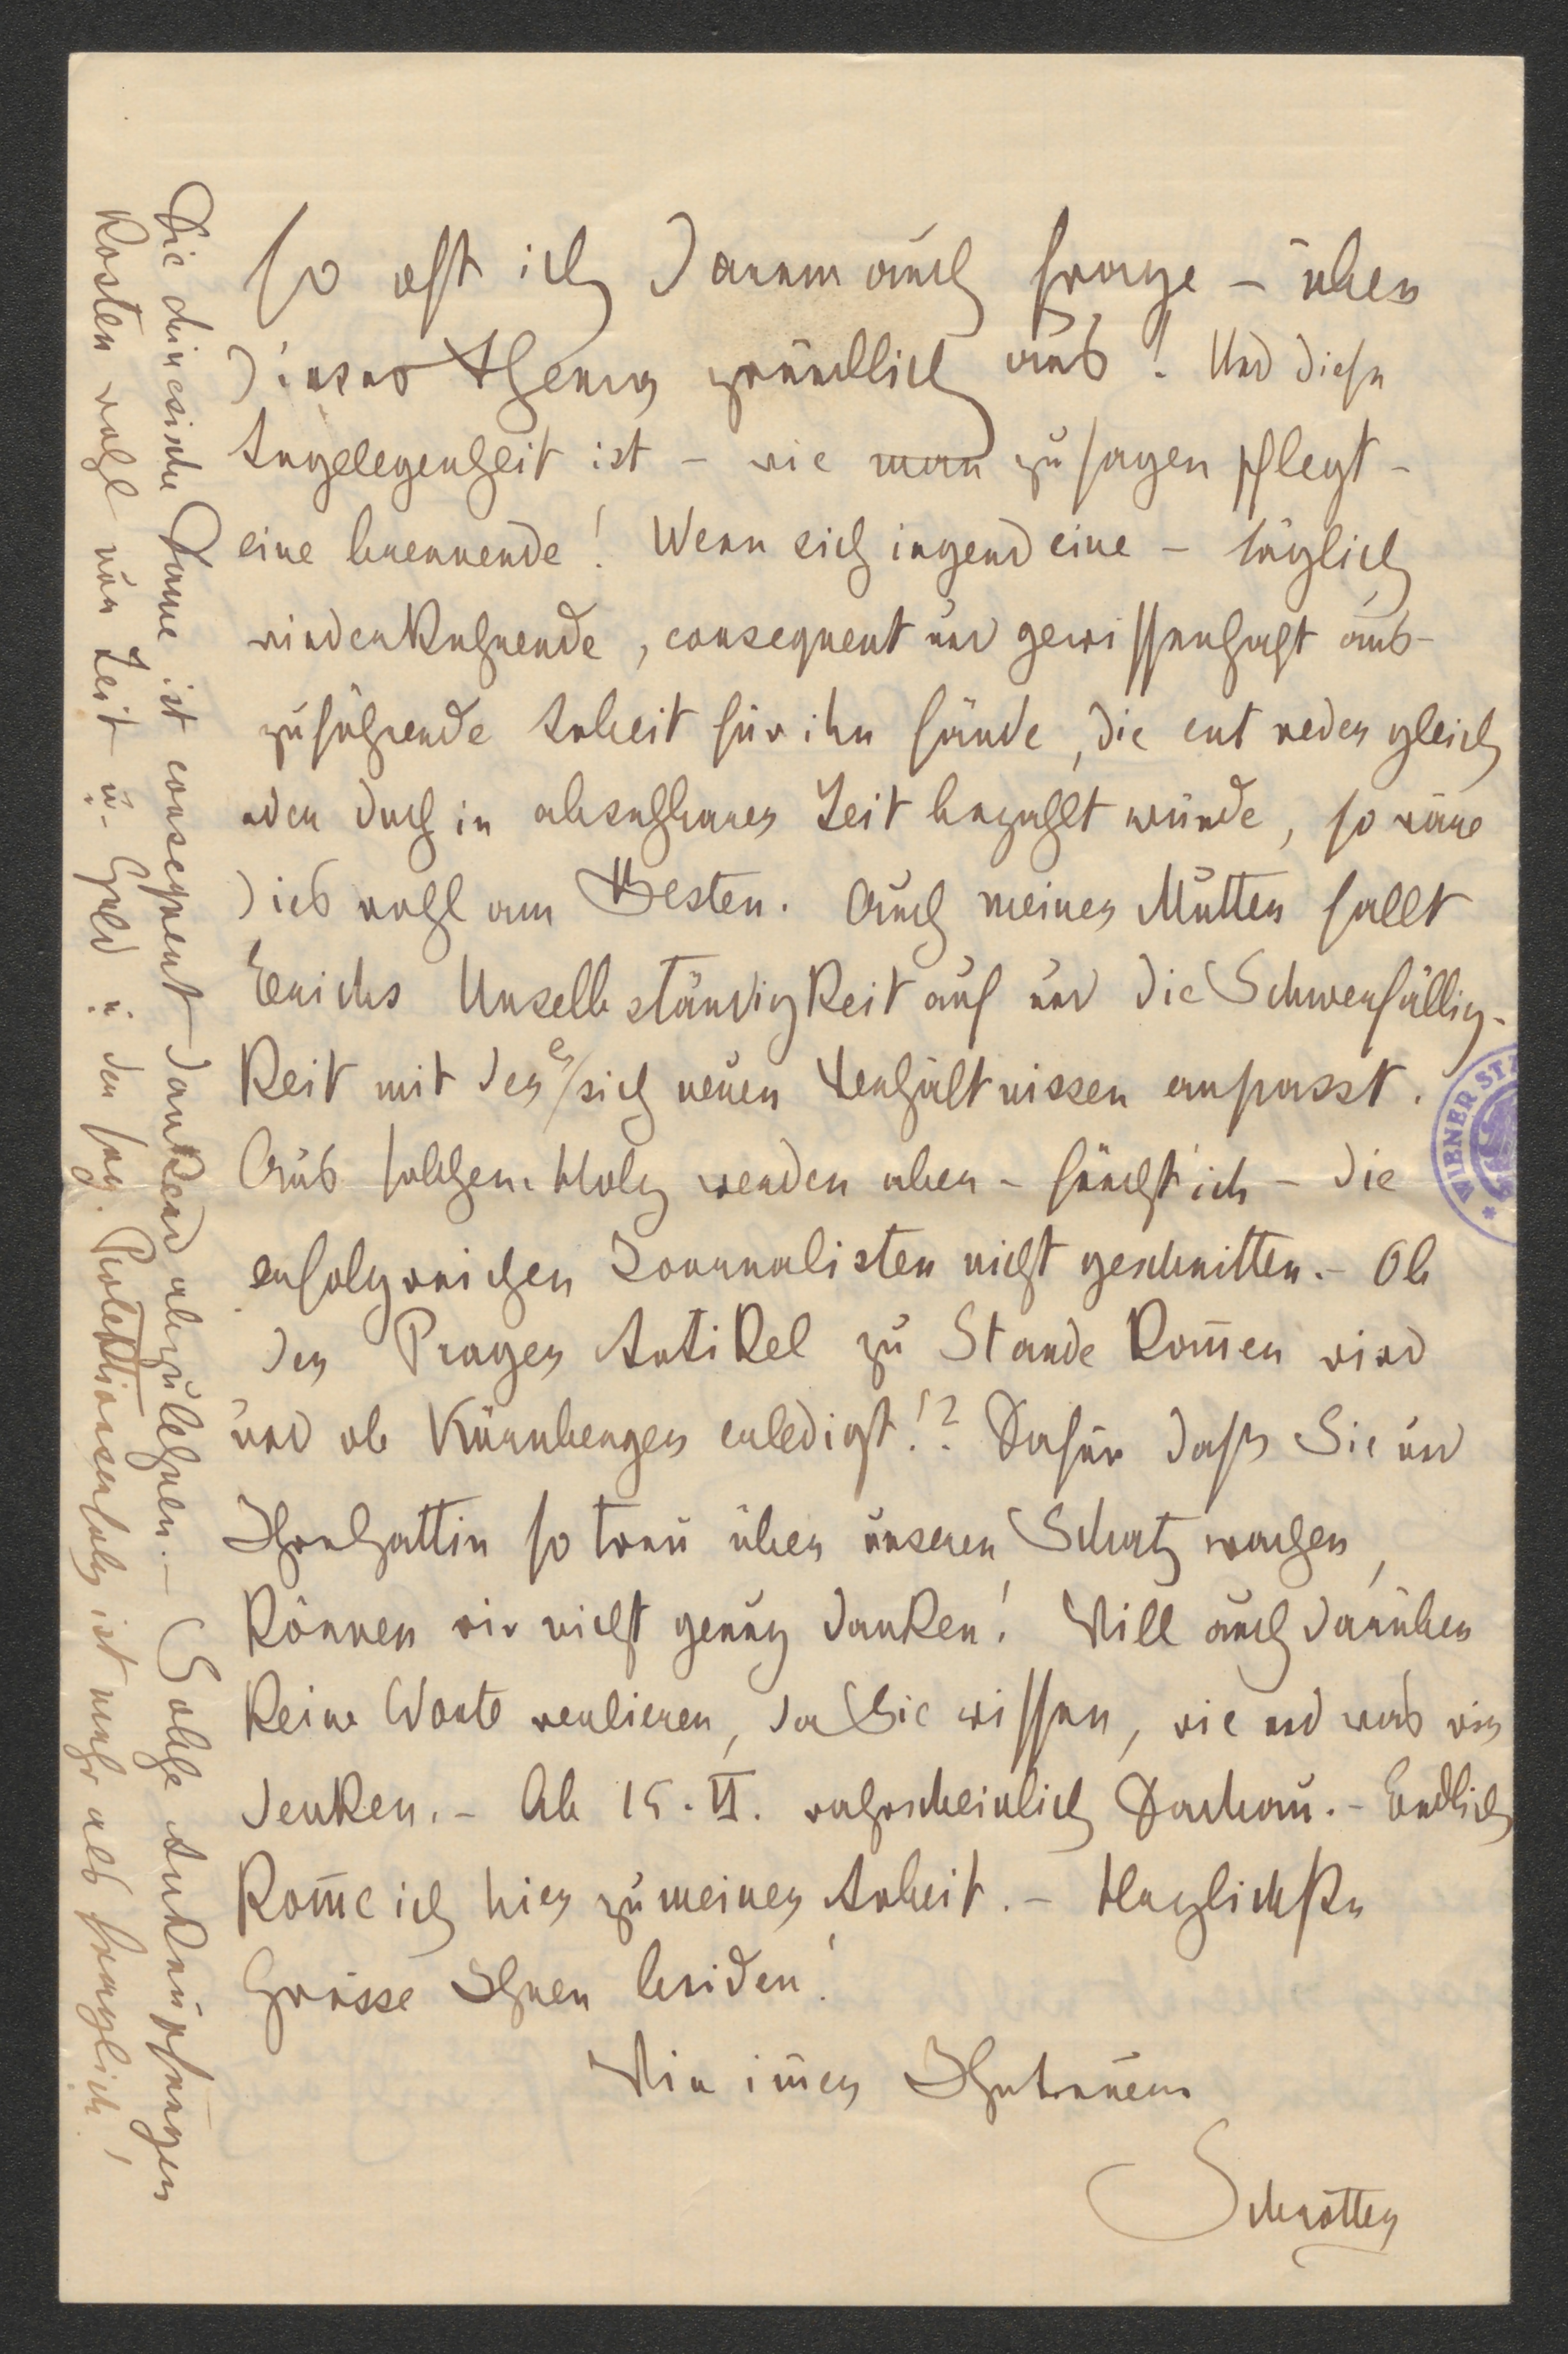 so oft ich darum auch frage – über
dieses Thema gründlich aus! Und diese
Angelegenheit ist – wie man zu sagen pflegt –
eine brennende! Wenn sich irgend eine – täglich
wiederkehrende, consequent und gewissenhaft aus-
zuführende Arbeit für ihn fände, die entweder gleich
oder doch in absehbarer Zeit bezahlt würde, so wäre
dies wohl am Besten. Auch meiner Mutter fällt
Erichs Unselbständigkeit auf und die Schwerfällig-
keit mit der er sich neuen Verhältnissen anpasst.
Aus solchem Holz werden aber – fürcht' ich – die
erfolgreichen Journalisten nicht geschnitten. – Ob
der Prager Artikel zu Stande kom̅en wird
und ob Kürnberger erledigt!? Dafür dass Sie und
Ihre Gattin so treu über unseren Schatz wachen,
können wir nicht genug danken! Will auch darüber
keine Worte verlieren, da Sie wissen, wie und was wir
denken. – Ab 15. VI. wahrscheinlich Dachau. – Endlich
kom̅e ich hier zu meiner Arbeit. – Herzlichste
Grüsse Ihnen beiden!
Wie im̅er Ihr treuer
Schrötter
Die chinesische Dame ist consequent dankend abzulehnen. – Solche Anknüpfungen
kosten wohl nur Zeit u. Geld u. der sog. Protektionserfolg ist mehr als fraglich!
WIENER ST